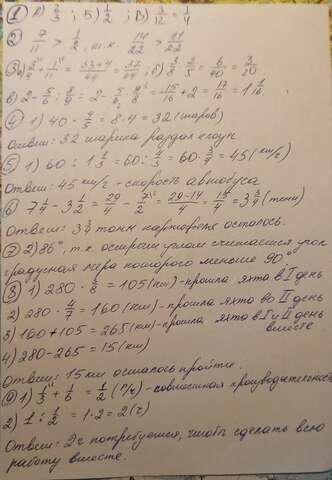 1 А) 2/3; Б) 1/2; В) 3/12 = 1/4
2 7/11 > 1/2, т.к. 14/22 > 11/22
б) 3/8 · 2/5 = 6/40 = 3/20
в) 2 - 5/6 : 8/9 =
4 1) 40 · 4/5 = 8·4 = 32 (шаров)
Ответ: 32 шарика раздал клоун
5 1) 60 : 1 1/3 = 60 : 4/3 = 60 · 3/4 = 45 (км/ч)
Ответ: 45 км/ч - скорость автобуса
6 7 1/4 - 3 1/2 = 29/4 - 7/2 = 29-14/4 = 15/4 = 3 3/4 (тонн)
Ответ: 3 3/4 тонн картофеля осталось.
7 2) 86°, т.к. острым углом считается угол
градусная мера которого меньше 90°
8 1) 280 · 3/8 = 105 (км) - прошла яхта в I день
2) 280 · 4/7 = 160 (км) - прошла яхта во II день
3) 160 + 105 = 265 (км) - прошла яхта в I и II день
вместе
4) 280 - 265 = 15 (км)
Ответ: 15 км осталось пройти.
9 1) 1/3 + 1/6 = 1/2 (р/ч) - совместная производительность
2) 1 : 1/2 = 1·2 = 2 (ч)
Ответ: 2ч потребуется, чтобы сделать всю
работу вместе.